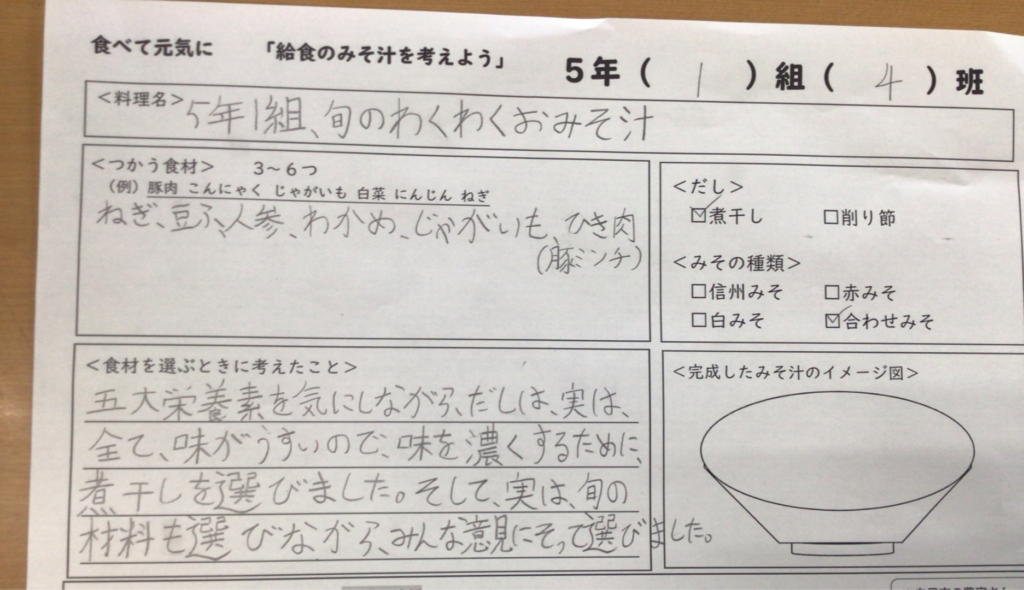 食べて元気に 「給食のみそ汁を考えよう」 5年( 1 )組( 4 )班
<料理名>
5年1組、旬のわくわくおみそ汁
<つかう食材> 3~6つ
(例)豚肉 こんにゃく じゃがいも 白菜 にんじん ねぎ
ねぎ、豆ふ、人参、わかめ、じゃがいも、ひき肉
(豚ミンチ)
<だし>
☑煮干し □削り節
<みその種類>
□信州みそ □赤みそ
□白みそ ☑合わせみそ
<食材を選ぶときに考えたこと>
五大栄養素を気にしながら、だしは、実は、
全て、味がうすいので、味を濃くするために、
煮干しを選びました。そして、実は、旬の
材料も選びながら、みんな意見にそって選びました。
<完成したみそ汁のイメージ図>